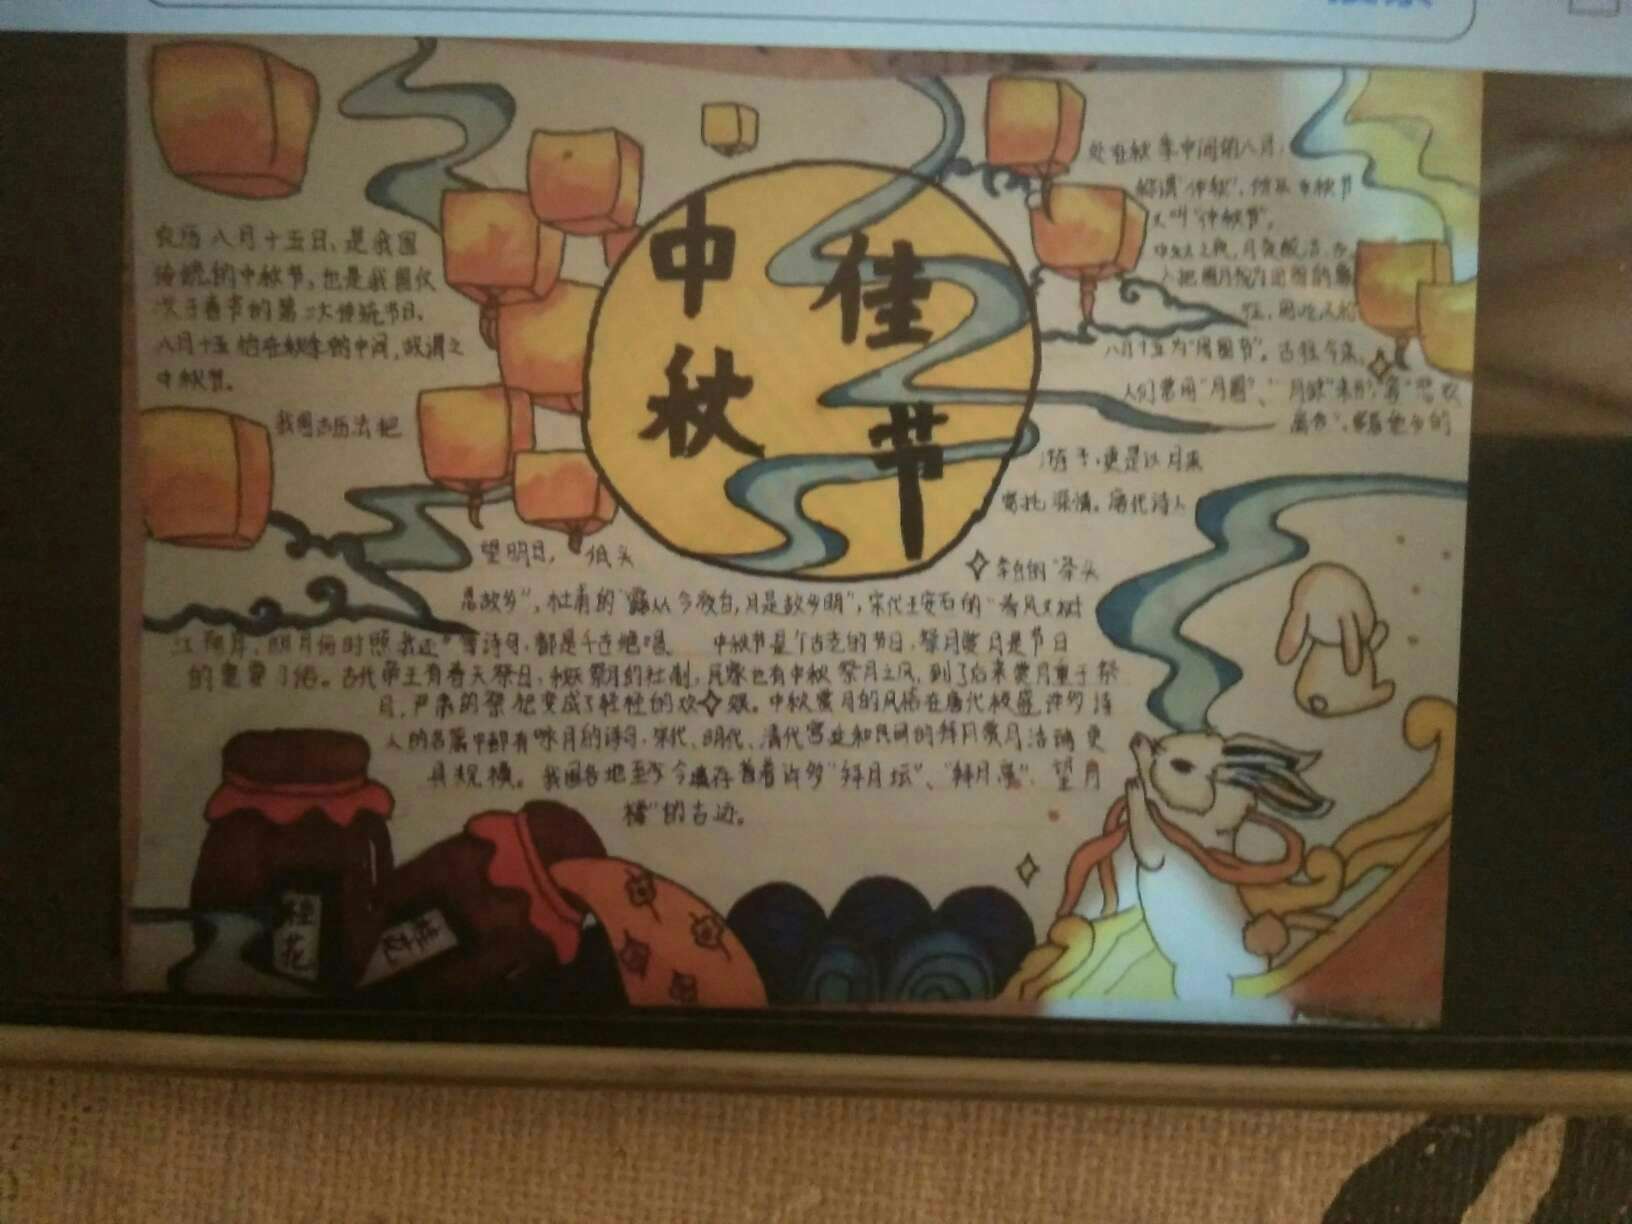 中秋
佳节
农历八月十五日，是我国
传统的中秋节，也是我国仅
次于春节的第二大传统节日，
八月十五恰在秋季的中间，故谓之
中秋节。
我国古历法把
处在秋季中间的八月，
称谓“仲秋”，所以中秋节
又叫“仲秋节”。
中秋之夜，月亮皎洁，古
人把圆月视为团圆的象
征，因此又称
八月十五为“团圆节”。古往今来，
人们常用“月圆”、“月缺”来形容“悲欢
离合”，客居他乡的
游子，更是以月来
寄托深情。唐代诗人
李白的“举头
望明月，低头
思故乡”，杜甫的“露从今夜白，月是故乡明”，宋代王安石的“春风又绿
江南岸，明月何时照我还”等诗句，都是千古绝唱。 中秋节是个古老的节日，祭月赏月是节日
的重要习俗。古代帝王有春天祭日，秋天祭月的社制，民家也有中秋祭月之风，到了后来赏月重于祭
月，严肃的祭祀变成了轻松的欢娱。中秋赏月的风俗在唐代极盛，许多诗
人的名篇中都有咏月的诗句，宋代、明代、清代宫廷和民间的拜月赏月活动更
具规模。我国各地至今遗存着许多“拜月坛”、“拜月亭”、望月
楼”的古迹。
桂花
桂花